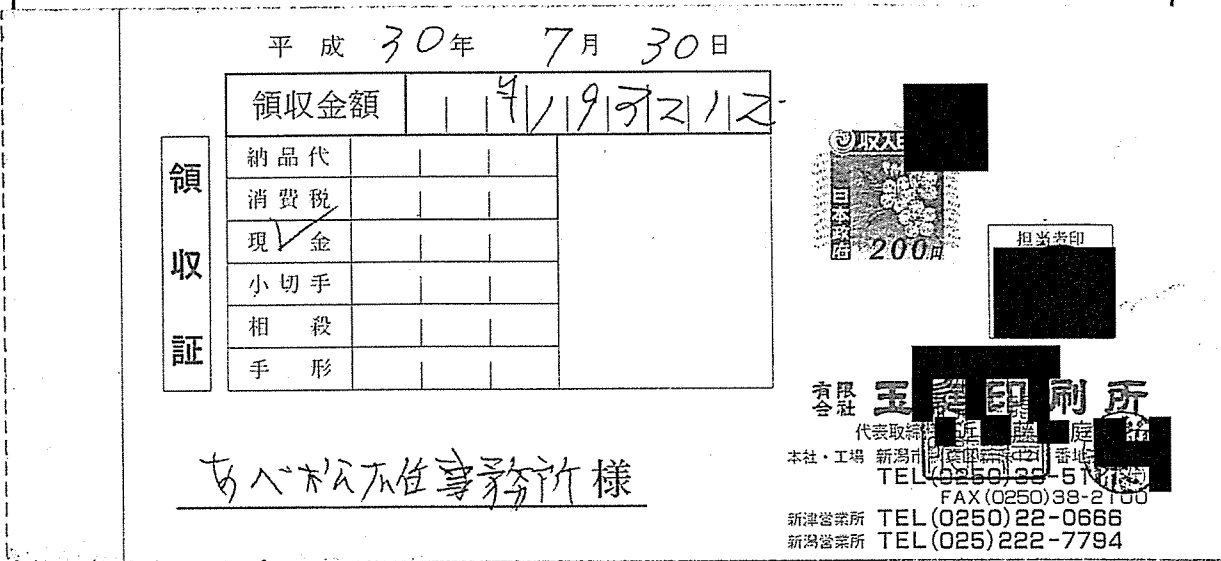 平成 30年 7月 30日
領収金額 ¥193212
領収証
納品代
消費税
現金
小切手
相殺
手形
収入印
日本政府
200円
担当者印
有限会社 玉 印刷所
代表取締 近 藤 庭
本社・工場 新潟市 番地
TEL(0250)38-51
FAX(0250)38-2100
新津営業所 TEL(0250)22-0666
新潟営業所 TEL(025)222-7794
事務所様